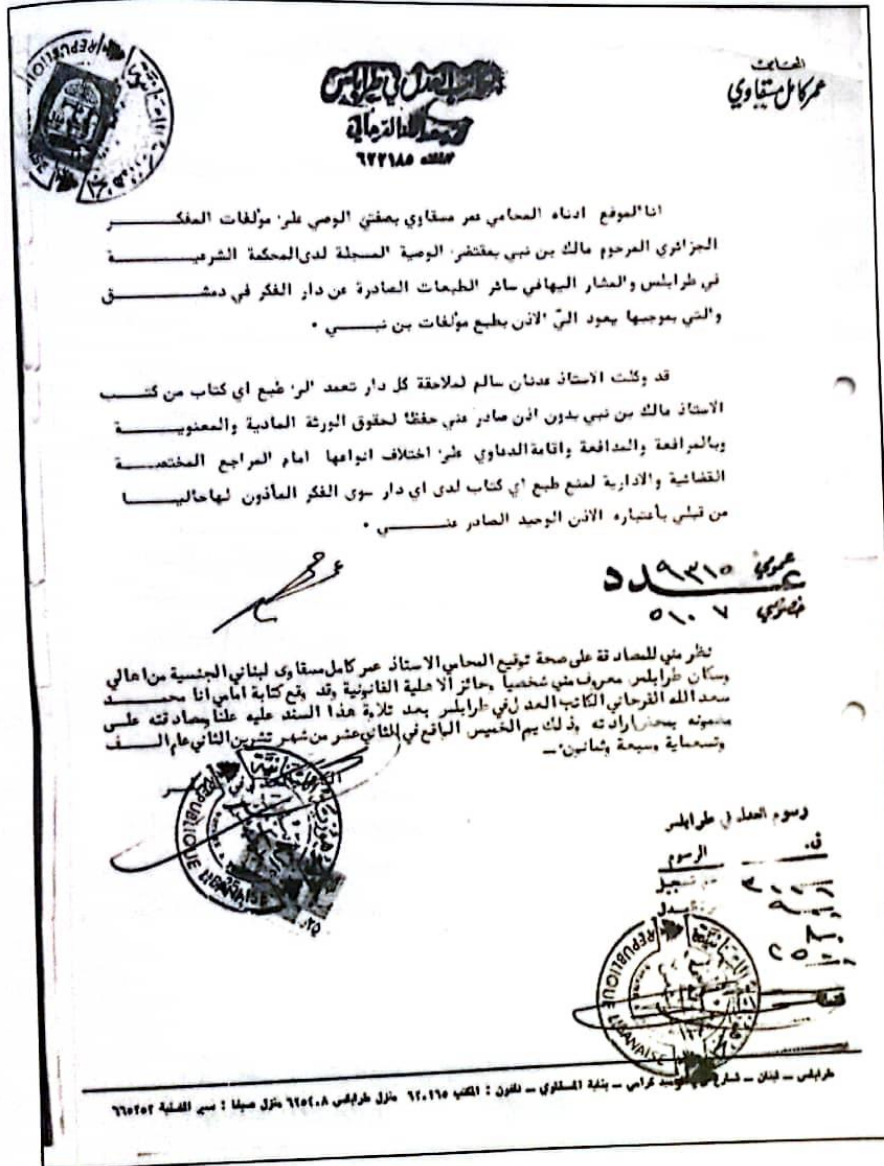 المحامي
عمر كامل مسقاوي
الكاتب العدل في طرابلس
٦٢٢١٨٥
انا الموقع ادناه المحامي عمر مسقاوي بصفتي الوصي على مؤلفات المفكر
الجزائري المرحوم مالك بن نبي بمقتضى الوصية المسجلة لدى المحكمة الشرعية
في طرابلس والمشار اليها في سائر الطبعات الصادرة عن دار الفكر في دمشق
والتي بموجبها يعود اليّ الاذن بطبع مؤلفات بن نبي ٠
قد وكلت الاستاذ عدنان سالم لملاحقة كل دار تعمد الى طبع اي كتاب من كتب
الاستاذ مالك بن نبي بدون اذن صادر عني حفظا لحقوق الورثة المادية والمعنوية
وبالمرافعة والمدافعة واقامة الدعاوي على اختلاف انواعها امام المراجع المختصة
القضائية والادارية لمنع طبع اي كتاب لدى اي دار سوى الفكر المأذون لها حاليا
من قبلي بأعتباره الاذن الوحيد الصادر عني ٠
عمومي ٩٣١٥
عدد
خصوصي ٥١٠٧
نظر مني للمصادقة على صحة توقيع المحامي الاستاذ عمر كامل مسقاوى لبناني الجنسية من اهالي
وسكان طرابلس معروف مني شخصيا وحائز الاهلية القانونية وقد وقع كتابة امامي انا محمد
سعد الله الفرحاني الكاتب العدل في طرابلس بعد تلاوة هذا السند عليه علنا ومصادقته على
مضمونه بمحض ارادته وذلك يوم الخميس الواقع في الثاني عشر من شهر تشرين الثاني عام الف
وتسعماية وسبعة وثمانون
REPUBLIQUE LIBANAISE
رسوم العدل في طرابلس
الرسوم ق.
تسجيل
REPUBLIQUE LIBANAISE
طرابلس ــ لبنان ــ شارع كرامي ــ بناية المسقاوي ــ تلفون : المكتب ٦٢٠١٦٥ منزل طرابلس ٦٢٥٤٠٨ منزل صيفا : سير الضنية ٦٦٥٢٥٢